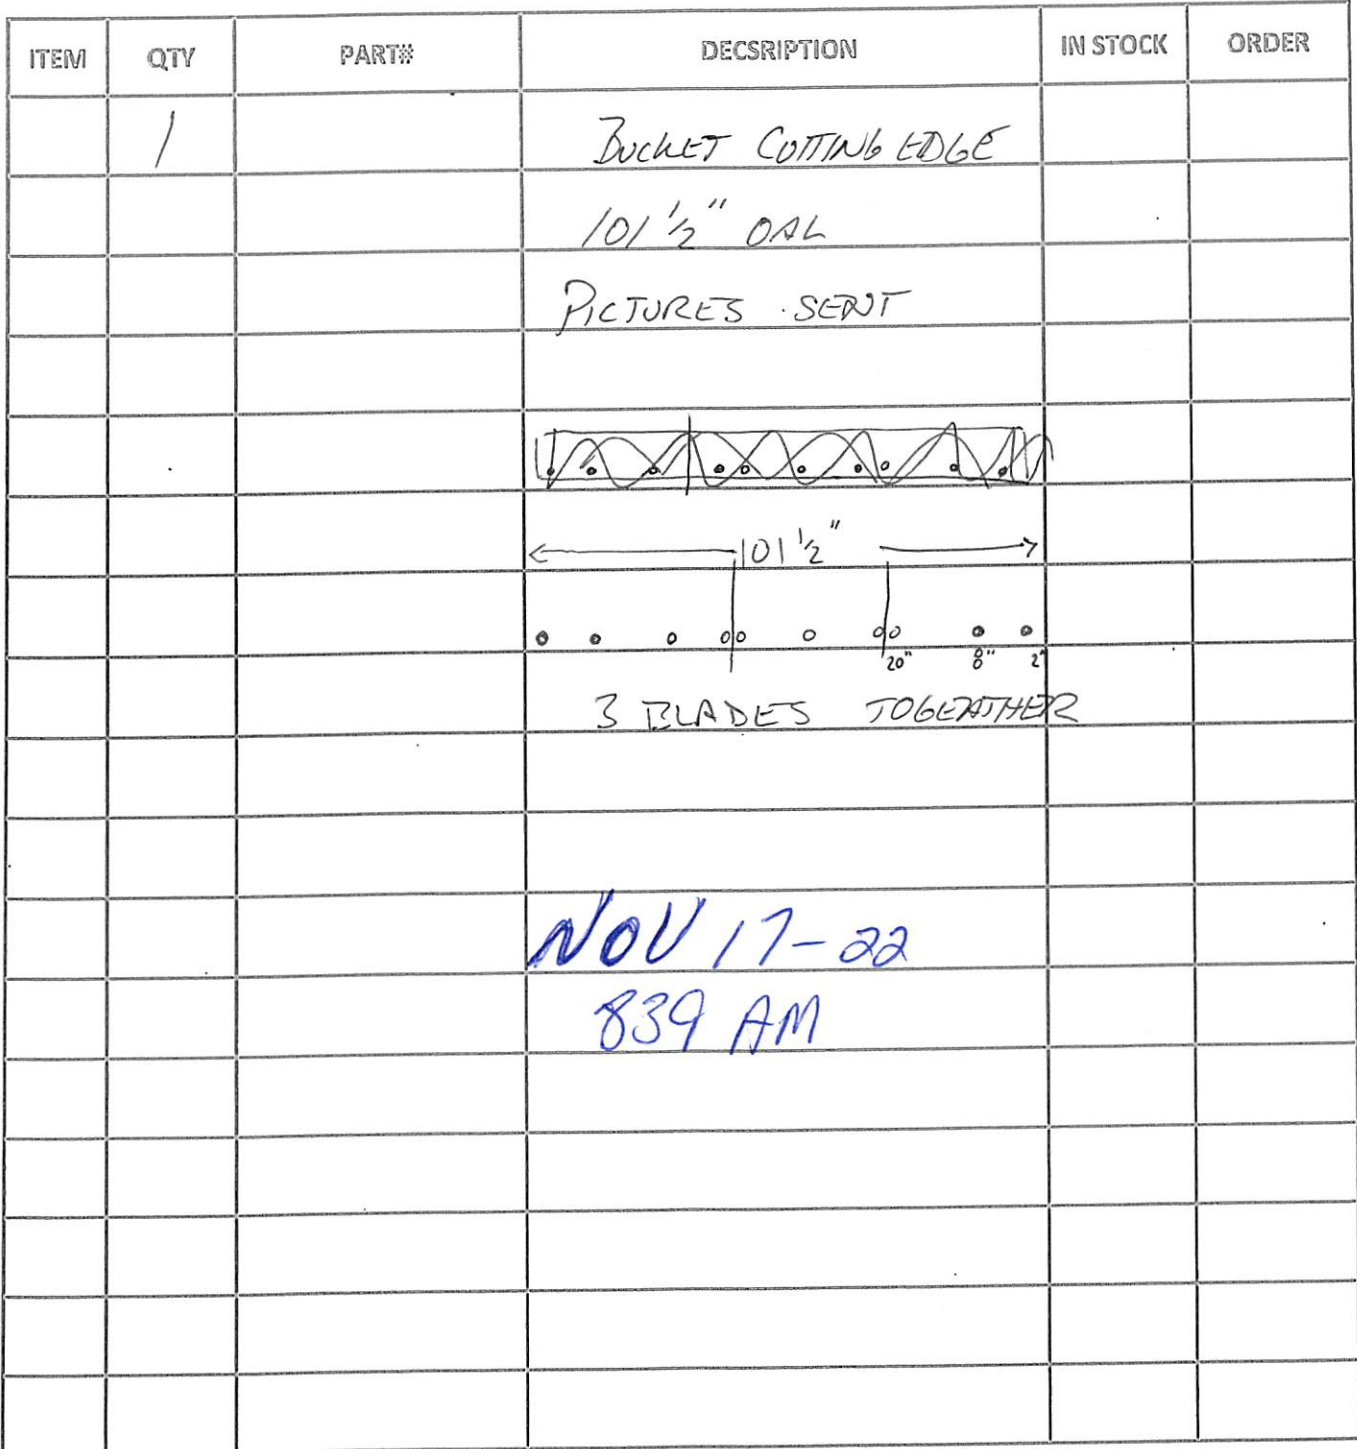 ITEM QTY PART# DECSRIPTION IN STOCK ORDER
1 BUCKET CUTTING EDGE
101 1/2" OAL
PICTURES SENT
101 1/2"
20" 8" 2"
3 BLADES TOGEATHER
NOV 17-22
839 AM